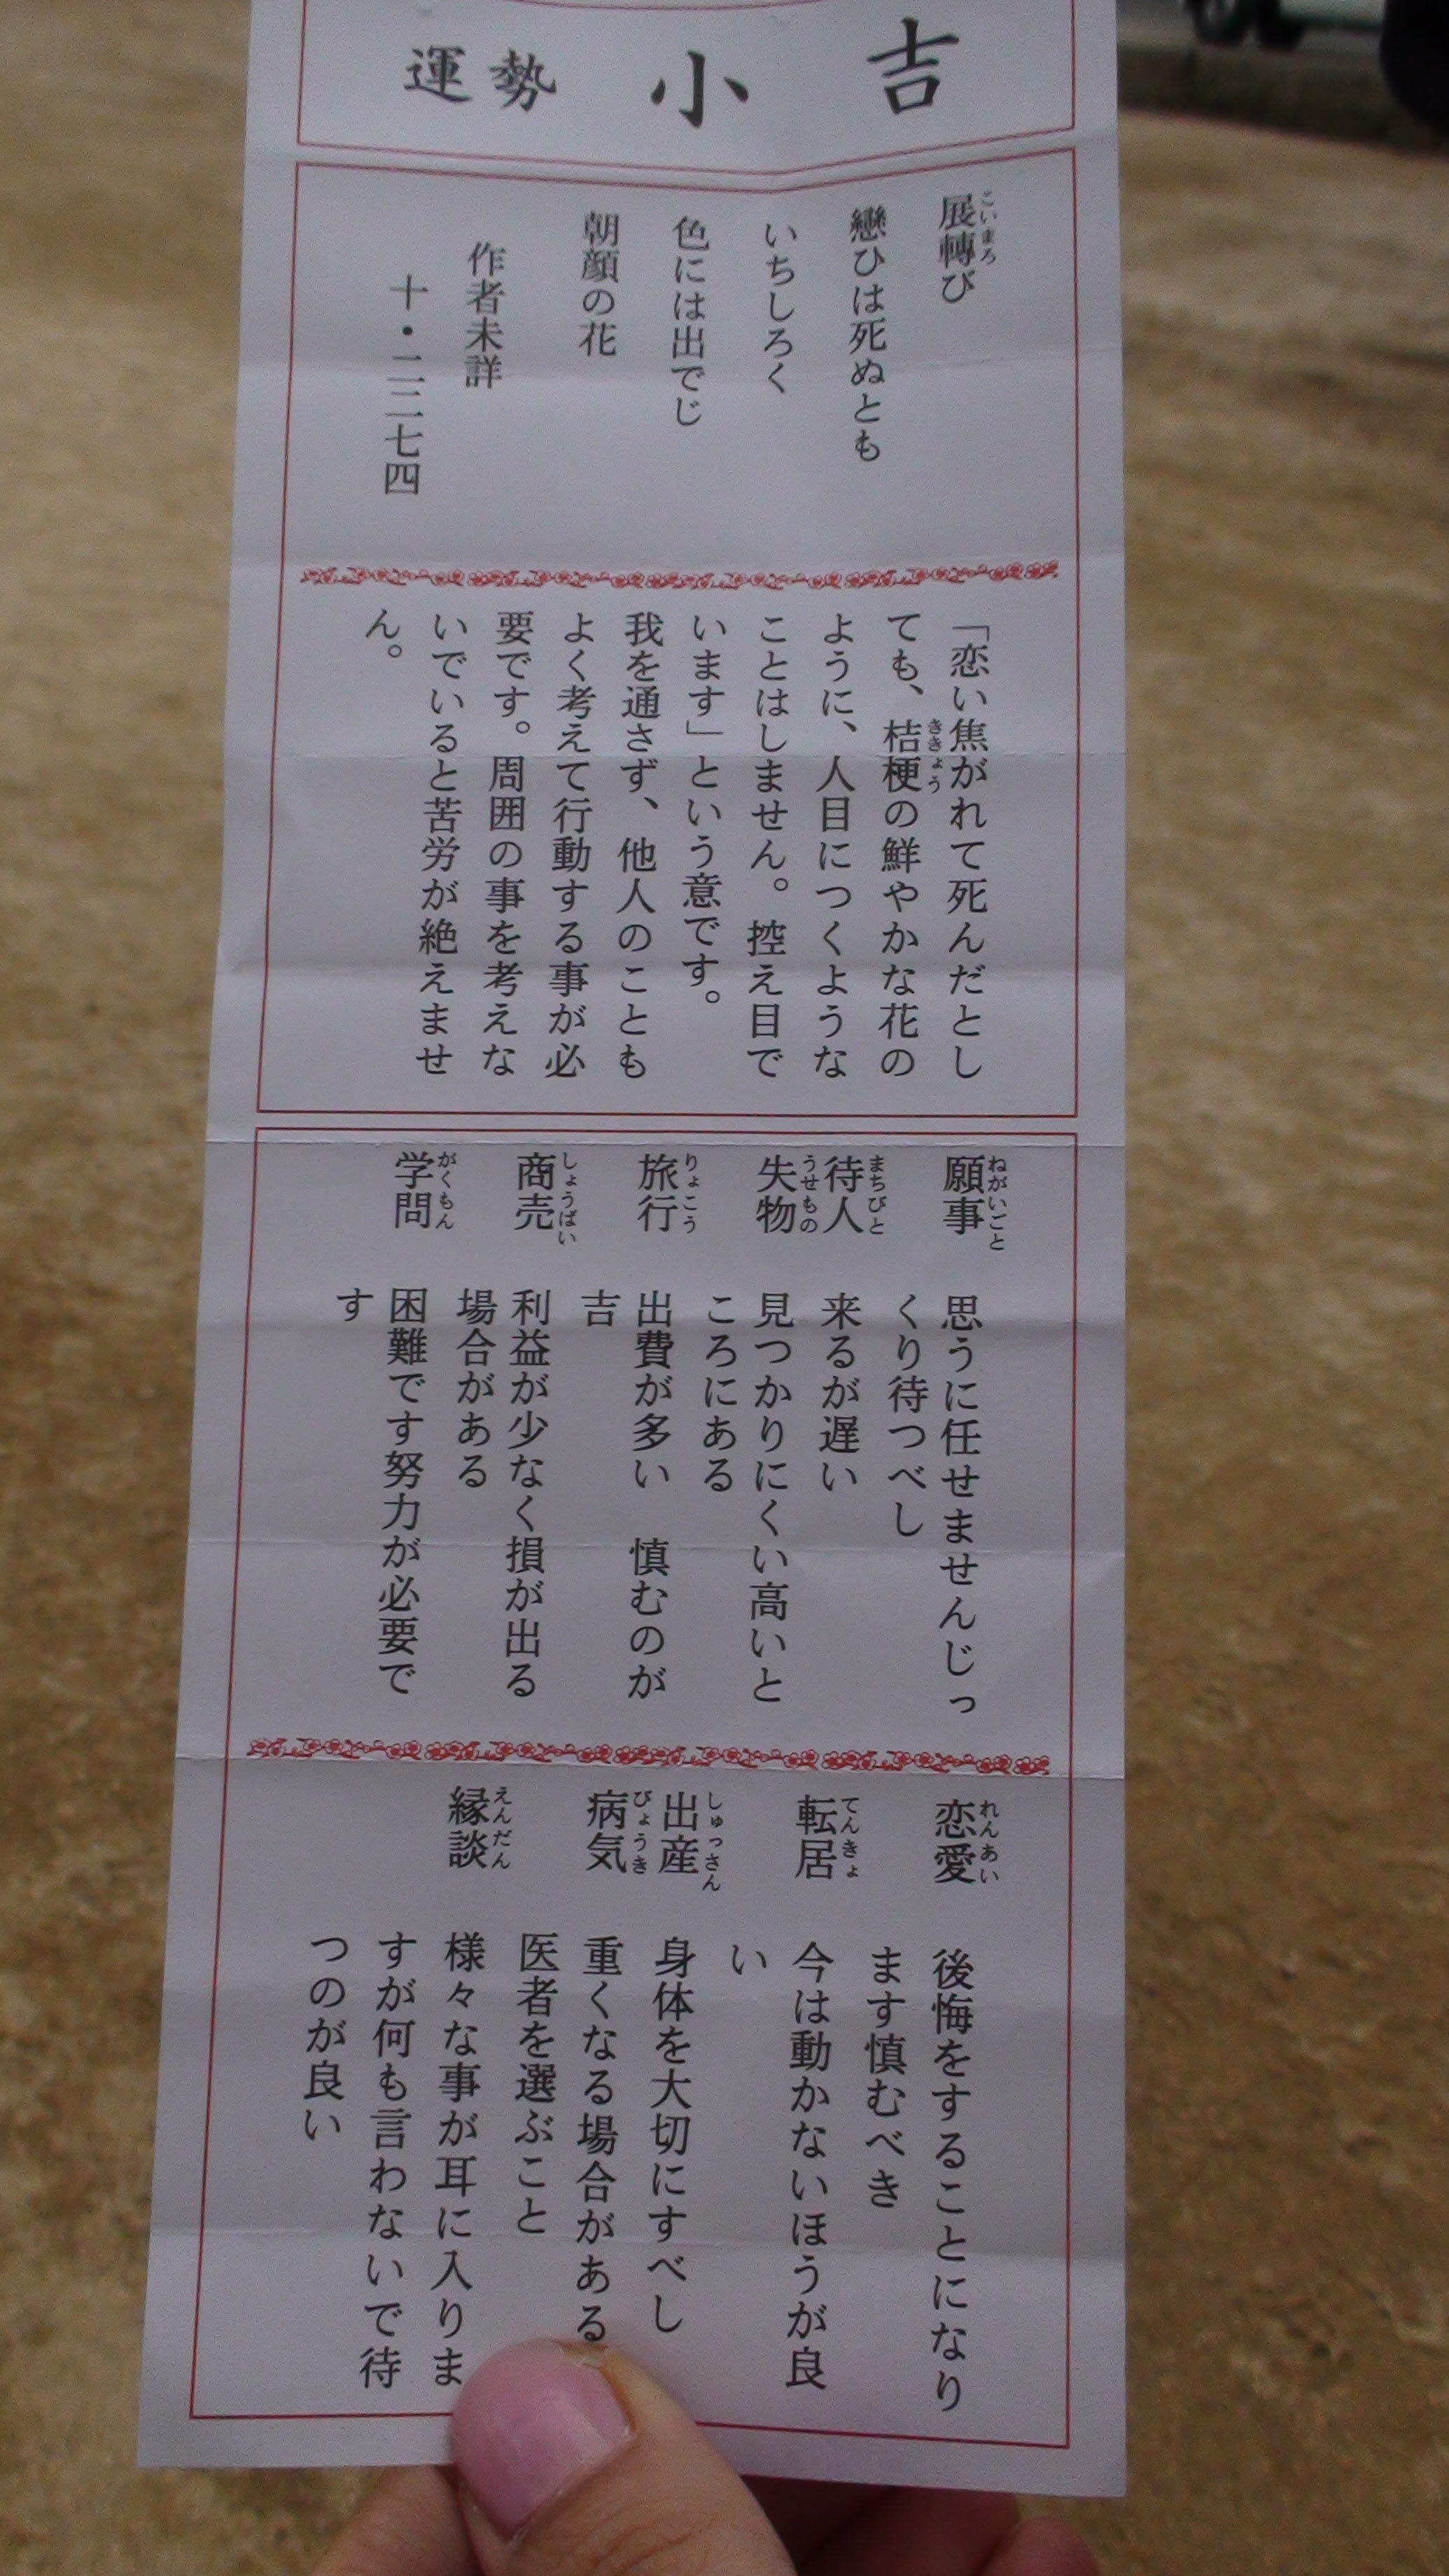 運勢 小吉
展轉び
こいまろ
戀ひは死ぬとも
いちしろく
色には出でじ
朝顔の花
作者未詳
十・二二七四
「恋い焦がれて死んだとし
ても、桔梗の鮮やかな花の
ききょう
ように、人目につくような
ことはしません。控え目で
います」という意です。
我を通さず、他人のことも
よく考えて行動する事が必
要です。周囲の事を考えな
いでいると苦労が絶えませ
ん。
願事 思うに任せませんじっ
ねがいごと
くり待つべし
待人 来るが遅い
まちびと
失物 見つかりにくい高いと
うせもの
ころにある
旅行 出費が多い 慎むのが
りょこう
吉
商売 利益が少なく損が出る
しょうばい
場合がある
学問 困難です努力が必要で
がくもん
す
恋愛 後悔をすることになり
れんあい
ます慎むべき
転居 今は動かないほうが良
てんきょ
い
出産 身体を大切にすべし
しゅっさん
病気 重くなる場合がある
びょうき
医者を選ぶこと
縁談 様々な事が耳に入りま
えんだん
すが何も言わないで待
つのが良い